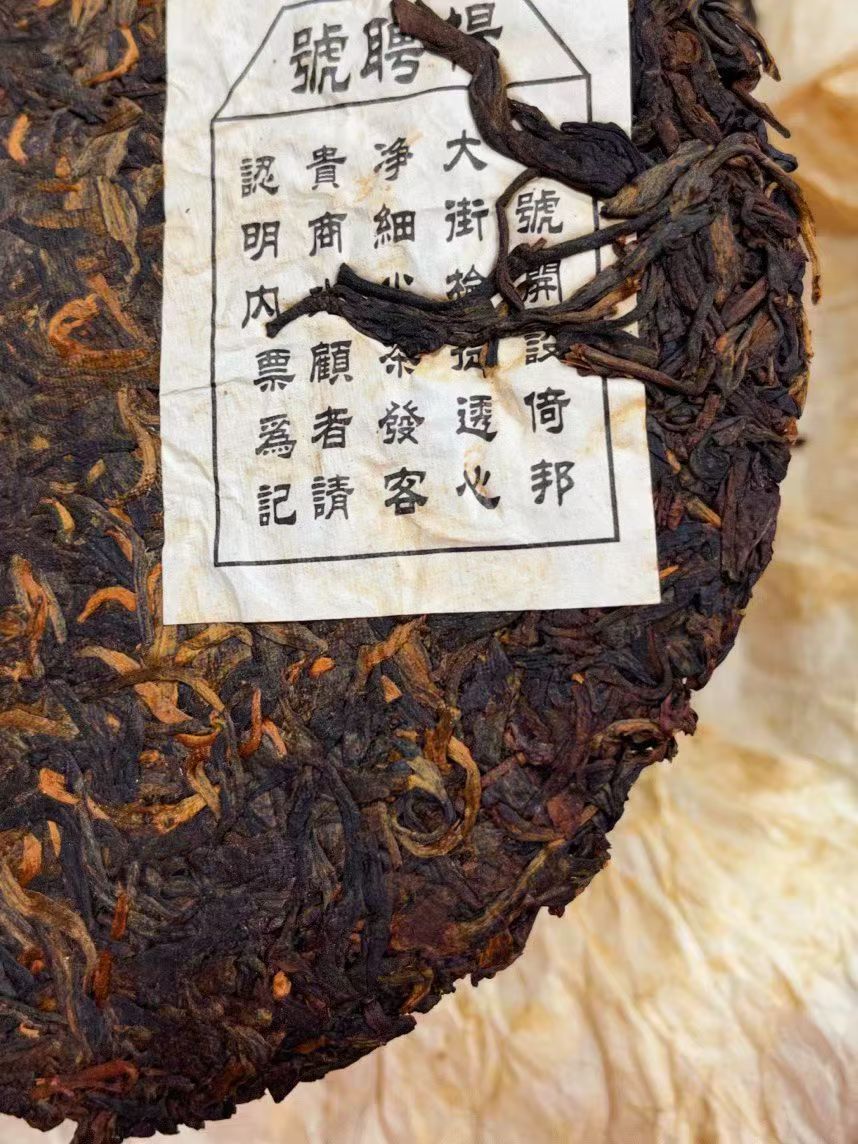 聘號
號開設倚邦
大街透心
净細茶發客
貴商顧者請
認明内票爲記